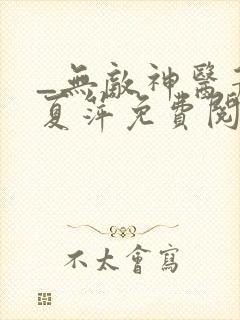 _無敵神醫
夏萍免費閱
不太會寫